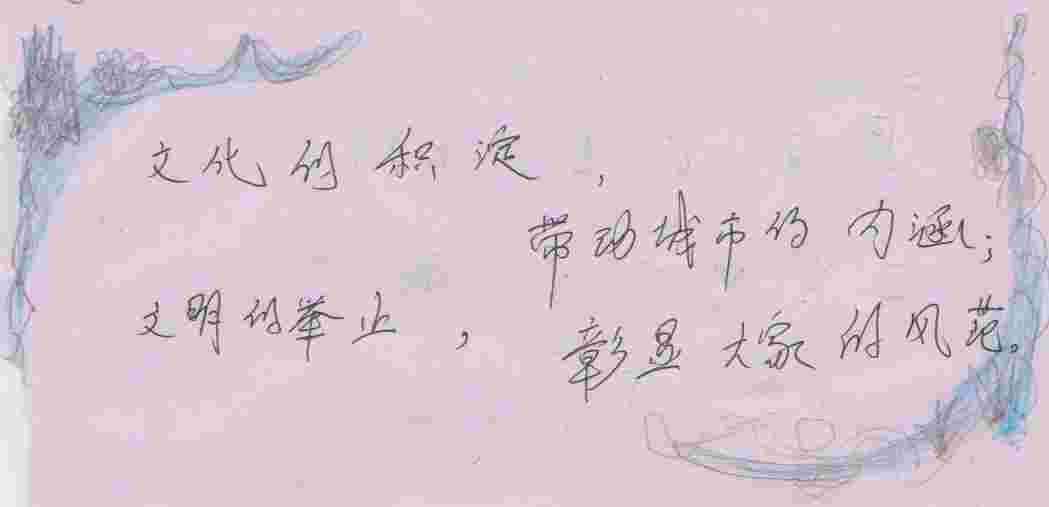 文化的积淀，
带动城市的内涵；
文明的举止，
彰显大家的风范。